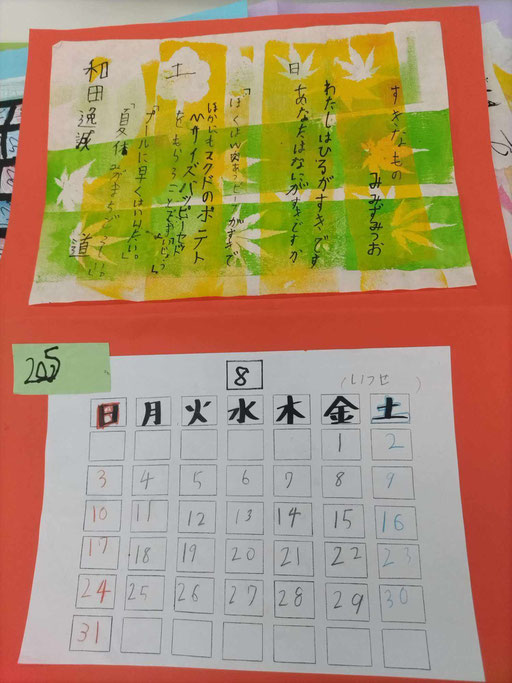 すきなもの
みみずみつお
わたしはひるがすきです
日 あなたはなにがすきですか
がすきで
ほかにもマクドのポテト
Mサイズハッピーセット
をもらうこと
土 「プールに早くはいりたい。」
「夏休みが
和田逸誠 道
2025
8
(いつせ )
日 月 火 水 木 金 土
1 2
3 4 5 6 7 8 9
10 11 12 13 14 15 16
17 18 19 20 21 22 23
24 25 26 27 28 29 30
31